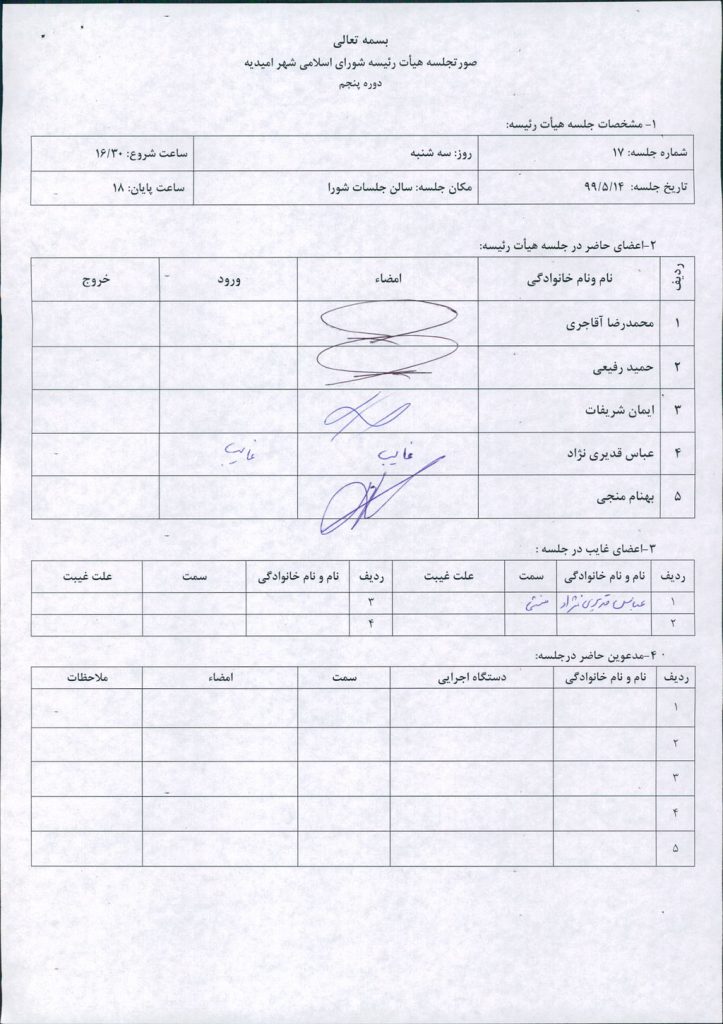 بسمه تعالی
صورتجلسه هیأت رئیسه شورای اسلامی شهر امیدیه
دوره پنجم
۱- مشخصات جلسه هیأت رئیسه:
شماره جلسه: ۱۷ روز: سه شنبه ساعت شروع: ۱۶/۳۰
تاریخ جلسه: ۹۹/۵/۱۴ مکان جلسه: سالن جلسات شورا ساعت پایان: ۱۸
۲-اعضای حاضر در جلسه هیأت رئیسه:
ردیف نام ونام خانوادگی امضاء ورود خروج
۱ محمدرضا آقاجری
۲ حمید رفیعی
۳ ایمان شریفات
۴ عباس قدیری نژاد غایب غایب
۵ بهنام منجی
۳-اعضای غایب در جلسه :
ردیف نام و نام خانوادگی سمت علت غیبت ردیف نام و نام خانوادگی سمت علت غیبت
۱ عباس قدیری نژاد منشی ۳
۲ ۴
۴-مدعوین حاضر درجلسه:
ردیف نام و نام خانوادگی دستگاه اجرایی سمت امضاء ملاحظات
۱
۲
۳
۴
۵